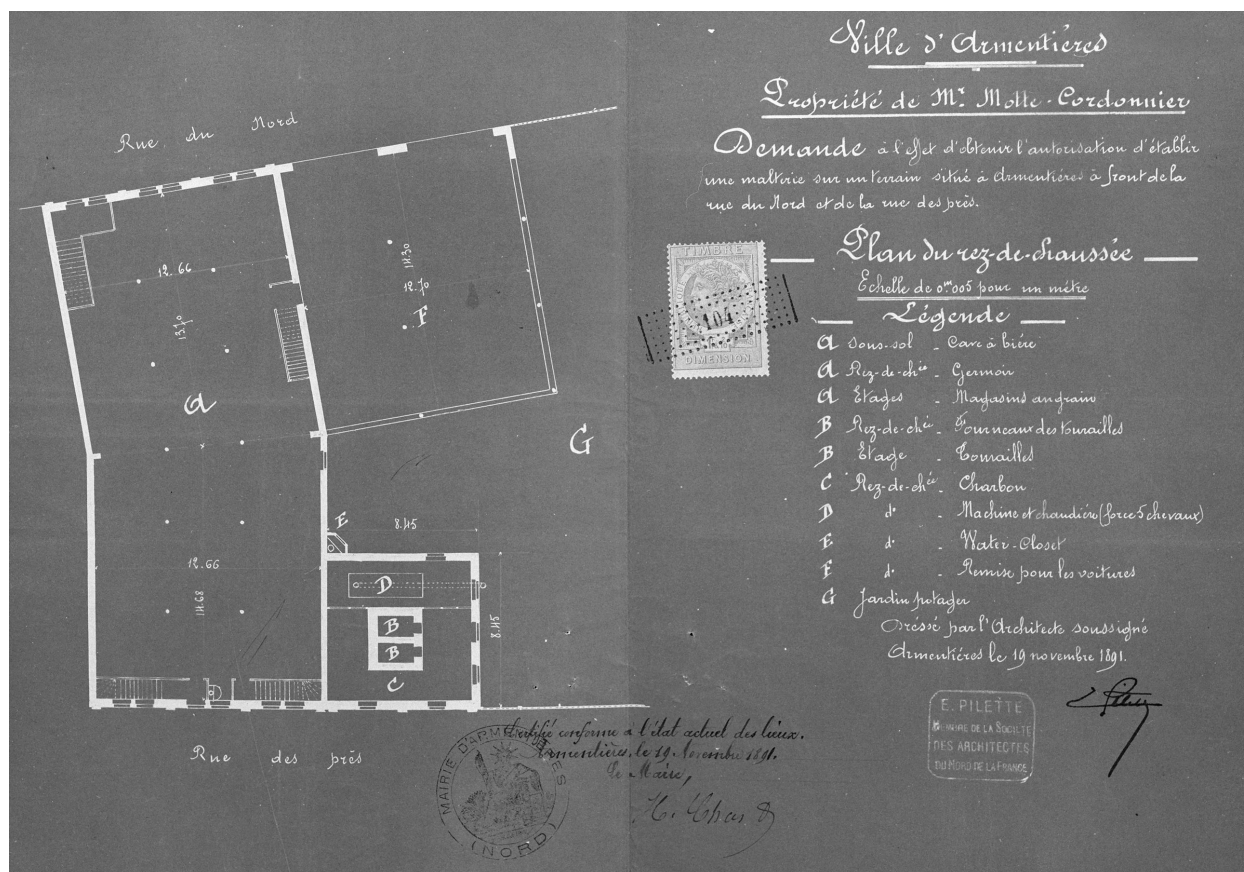 Ville d'Armentières
Propriété de Mr. Motte-Cordonnier
Demande à l'effet d'obtenir l'autorisation d'établir
une malterie sur un terrain situé à Armentières à front de la
rue du Nord et de la rue des près.
Plan du rez-de-chaussée
Echelle de 0m.005 pour un mètre
Légende
A Sous-sol - Cave à bière
A Rez-de-chée - Germoir
A Etages - Magasins au grain
B Rez-de-chée - Fourneaux des tourailles
B Etage - Tourailles
C Rez-de-chée - Charbon
D do - Machine et chaudière (force 5 chevaux)
E do - Water-Closet
F do - Remise pour les voitures
G Jardin potager
Dréssé par l'Architecte soussigné
Armentières le 19 novembre 1891.
E. PILETTE
MEMBRE DE LA SOCIETE
DES ARCHITECTES
DU NORD DE LA FRANCE
TIMBRE
104
DIMENSION
Rue du Nord
12.66
13.70
A
14.30
12.70
F
G
E
8.45
12.66
14.68
D
B
B
C
8.45
Rue des près
Certifié conforme à l'état actuel des lieux.
Armentières, le 19 Novembre 1891.
Le Maire,
MAIRIE D'ARMENTIÈRES
(NORD)